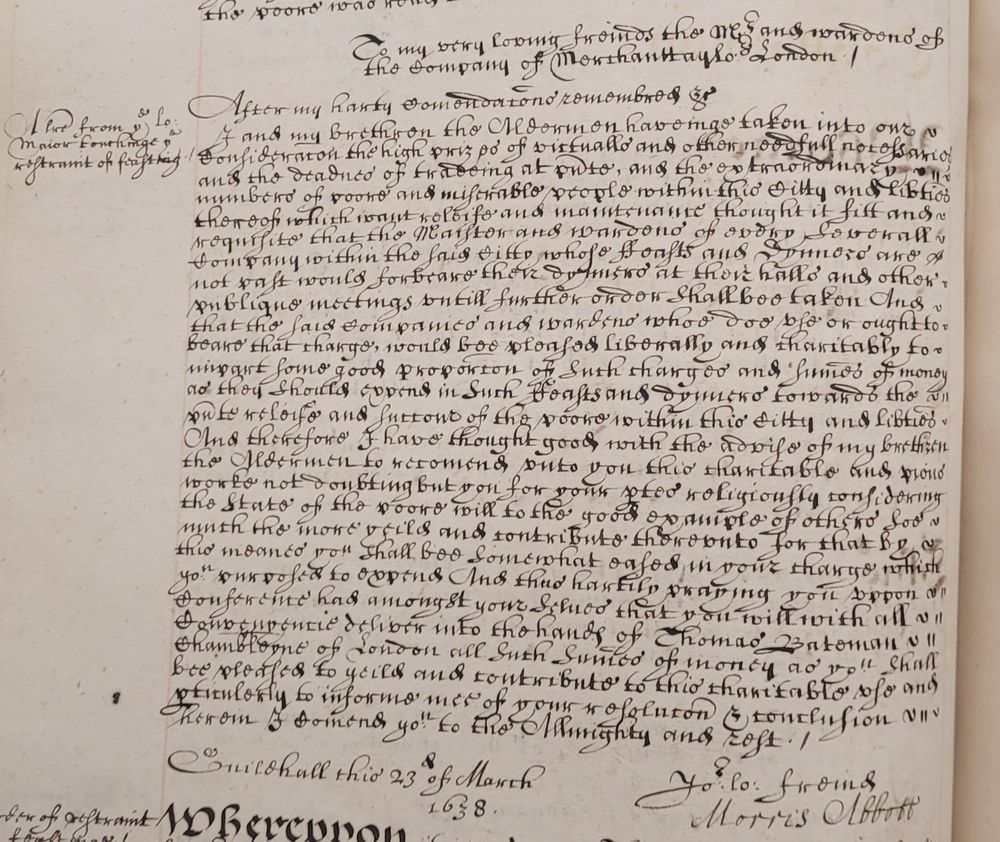 the poore was
To my very loving freinds the Mr and wardens of
the Company of Merchanttaylors London /
After my harty Comendacons remembred &c
A lre from ye lo:
Maior touchinge ye
restraint of feasting /
I and my brethren the Aldermen haveinge taken into our
Consideracon the high prizes of victualls and other needfull necessaries
and the deadnes of tradeing at pnte, and the extraordinary
numbers of poore and miserable people within this Citty and libties
thereof which want releife and maintenance thought it fitt and
requisite that the Maister and wardens of every severall
Company within the said Citty whose feasts and Dynners are
not past would forbeare their dynners at their halls and other
publique meetings untill further order shall bee taken And
that the said Companies and wardens whoe doe use or ought to
beare that charge, would bee pleased liberally and charitably to
impart some good proporcon of such charges and sumes of money
as they should expend in such feasts and dynners towards the
pnte releife and succour of the poore within this Citty and libties
And therefore I have thought good with the advise of my brethren
the Aldermen to recomend unto you this charitable and pious
worke not doubting but you for your ptes religiously considering
the State of the poore will to the good example of others soe
much the more yeild and contribute thereunto for that by
this meanes you shall bee somewhat eased in your charge which
you purposed to expend And thus hartily praying you uppon
Conference had amongst your selves that you will with all
Convenyencie deliver into the hands of Thomas Bateman
Chambleyne of London all such sumes of money as you shall
bee pleased to yeild and contribute to this charitable use and
pticulerly to informe mee of your resolucon & conclusion
herein I Comend you to the Allmighty and rest . /
Guildhall this 23d of March
1638.
Yor: lo: freind
Morris Abbott
der of restraint
Whereuppon